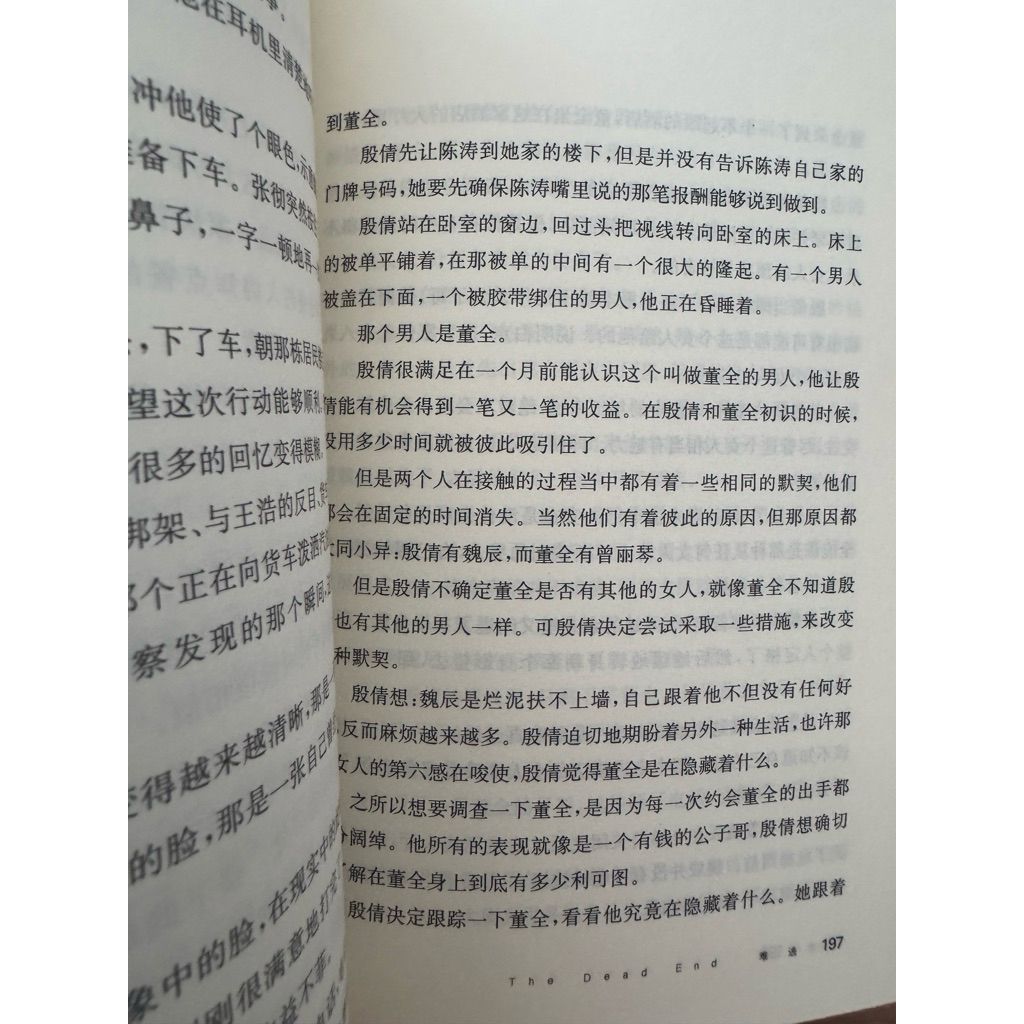 他在耳机里清楚
冲他使了个眼色，示
准备下车。张彻突然
鼻子，一字一顿地再一
，下了车，朝那栋居民
望这次行动能够顺利
很多的回忆变得模糊
绑架、与王浩的反目、货
那个正在向货车泼洒汽
察发现的那个瞬间
变得越来越清晰，那是
的脸，那是一张自己
象中的脸，在现实中的
刚很满意地打
益不靠
到董全。
殷倩先让陈涛到她家的楼下，但是并没有告诉陈涛自己家的
门牌号码，她要先确保陈涛嘴里说的那笔报酬能够说到做到。
殷倩站在卧室的窗边，回过头把视线转向卧室的床上。床上
的被单平铺着，在那被单的中间有一个很大的隆起。有一个男人
被盖在下面，一个被胶带绑住的男人，他正在昏睡着。
那个男人是董全。
殷倩很满足在一个月前能认识这个叫做董全的男人，他让殷
倩能有机会得到一笔又一笔的收益。在殷倩和董全初识的时候，
没用多少时间就被彼此吸引住了。
但是两个人在接触的过程当中都有着一些相同的默契，他们
都会在固定的时间消失。当然他们有着彼此的原因，但那原因都
大同小异：殷倩有魏辰，而董全有曾丽琴。
但是殷倩不确定董全是否有其他的女人，就像董全不知道殷
也有其他的男人一样。可殷倩决定尝试采取一些措施，来改变
种默契。
殷倩想：魏辰是烂泥扶不上墙，自己跟着他不但没有任何好
反而麻烦越来越多。殷倩迫切地期盼着另外一种生活，也许那
女人的第六感在唆使，殷倩觉得董全是在隐藏着什么。
之所以想要调查一下董全，是因为每一次约会董全的出手都
分阔绰。他所有的表现就像是一个有钱的公子哥，殷倩想确切
了解在董全身上到底有多少利可图。
殷倩决定跟踪一下董全，看看他究竟在隐藏着什么。她跟着
The Dead End 难逃 197